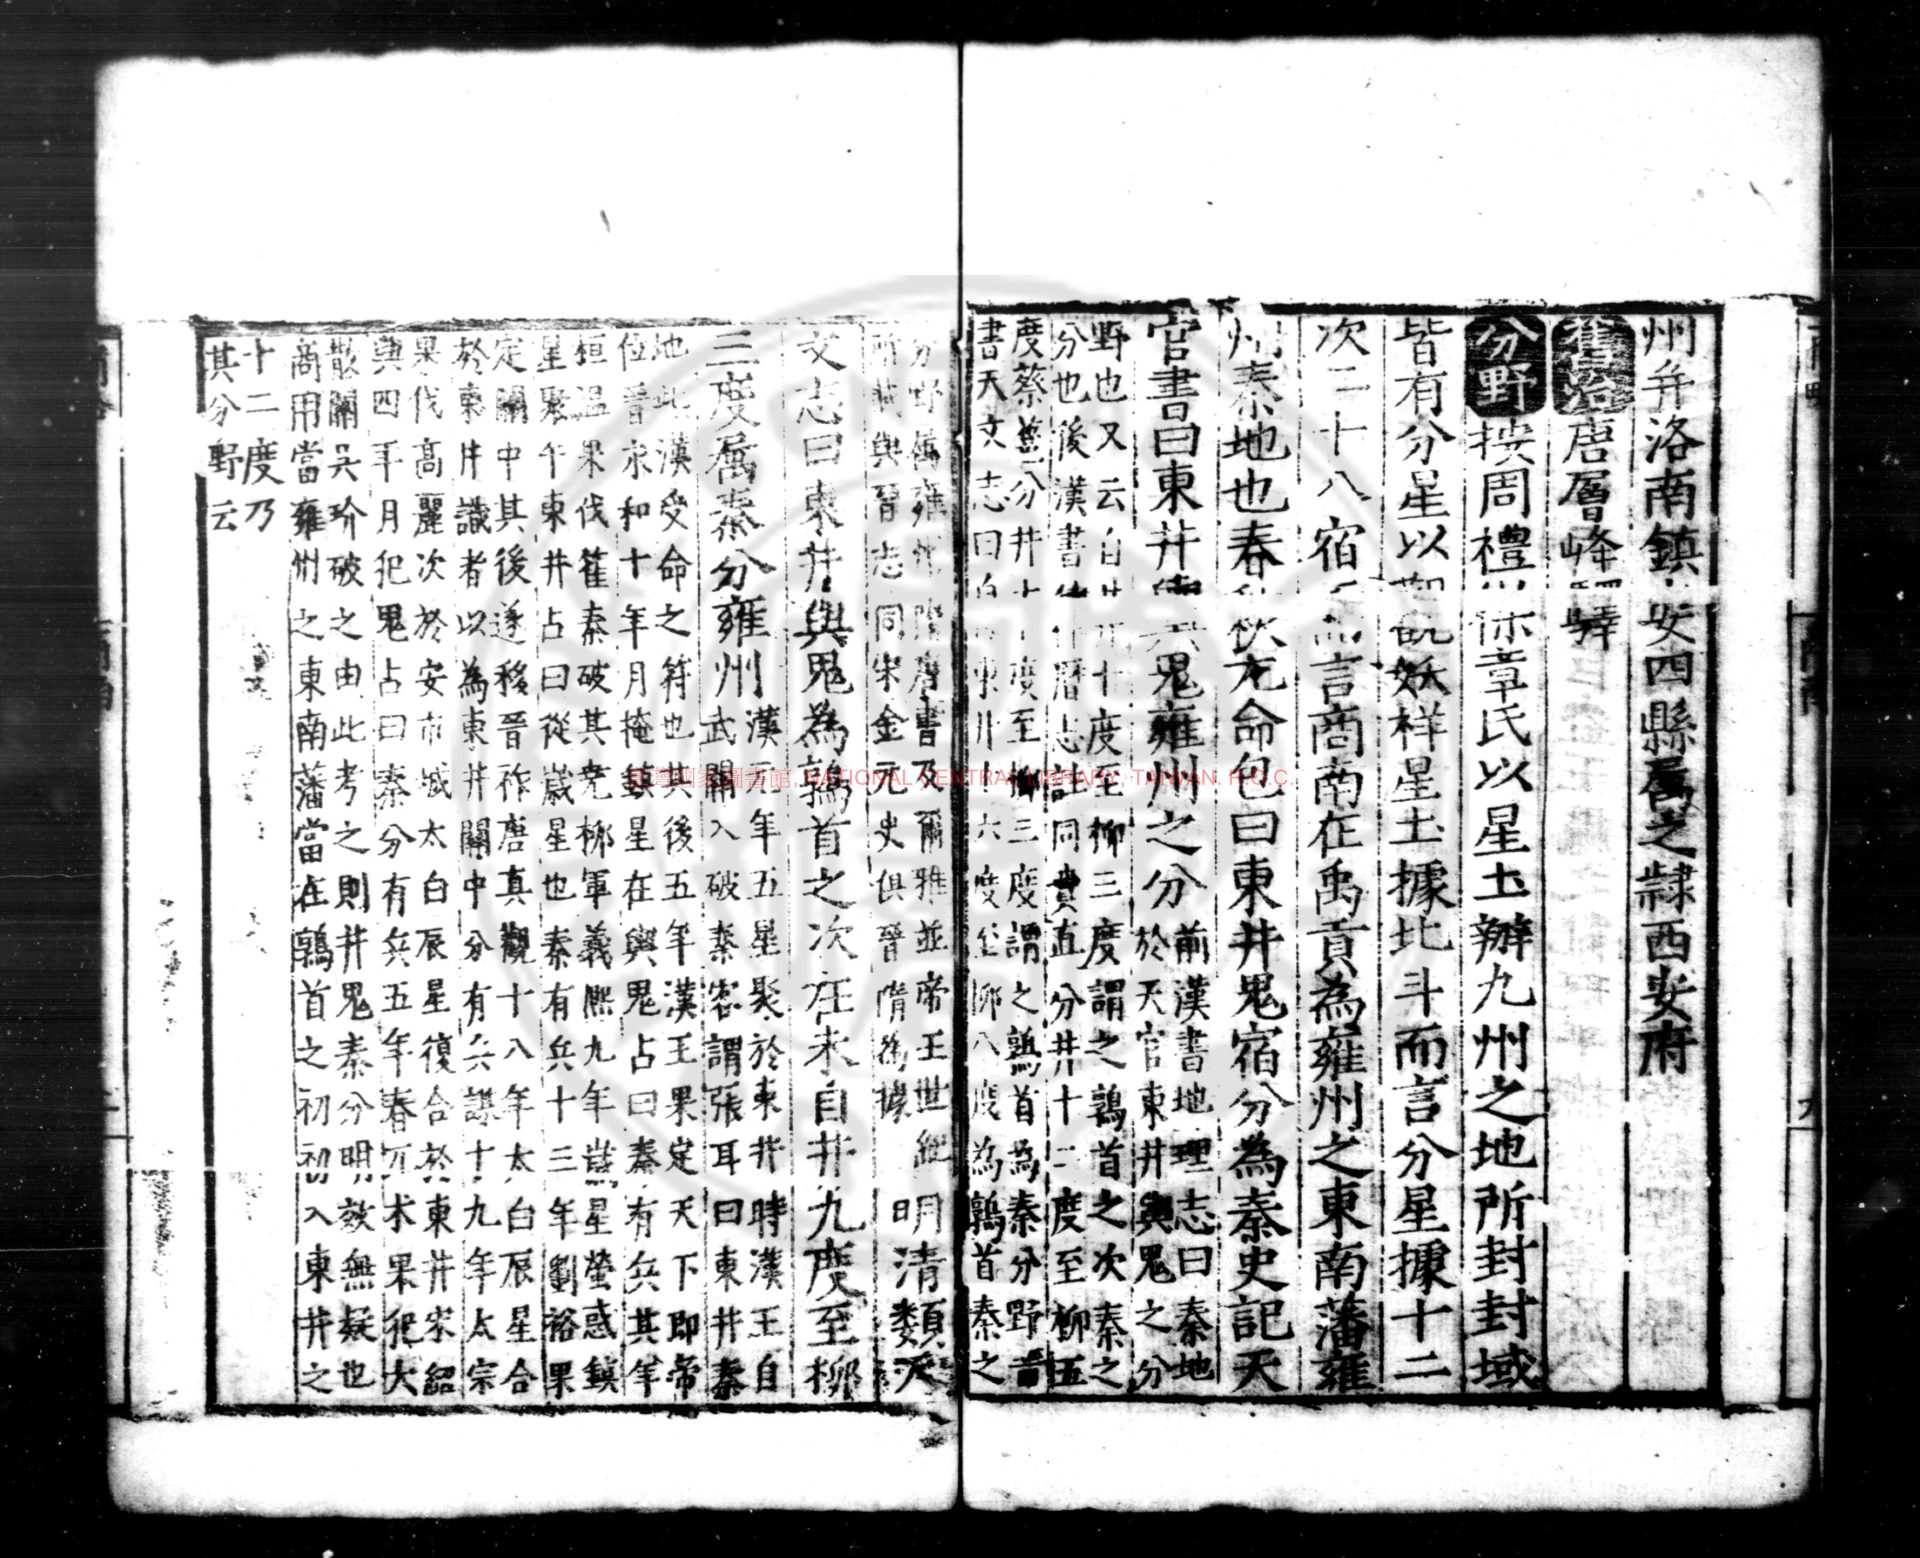 州弁洛南鎮安四縣屬之隸西安府
舊治唐層峰驛
分野按周禮保章氏以星土辦九州之地所封封域
皆有分星以觀妖祥星土據北斗而言分星據十二
次二十八宿而言商南在禹貢為雍州之東南藩雍
州秦地也春秋元命包曰東井鬼宿分為秦史記天
官書曰東井輿鬼雍州之分前漢書地理志曰秦地
於天官東井輿鬼之分
野也又云自井十度至柳三度謂之鶉首之次秦之
分也後漢書律曆志註同費直分井十二度至柳五
度蔡邕分井十度至柳三度謂之鶉首為秦分野晉
書天文志曰自東井十六度至柳八度為鶉首秦之
分野屬雍州隋唐書及爾雅並帝王世紀明清類天
所載與晉志同宋金元史俱晉隋為據
文志曰東井輿鬼為鶉首之次在未自井九度至柳
三度屬秦分雍州漢元年五星聚於東井時漢王自
武關入破秦客謂張耳曰東井秦
地此漢受命之符也其後五年漢王果定天下即帝
位晉永和十年月掩鎮星在輿鬼占曰秦有兵其年
桓溫果伐苻秦破其堯柳軍義熙九年歲星熒惑鎮
星聚于東井占曰從歲星也秦有兵十三年劉裕果
定關中其後遂移晉祚唐真觀十八年太白辰星合
於東井識者以為東井關中分有兵謀十九年太宗
果伐高麗次於安市城太白辰星復合於東井宋紹
興四年月犯鬼占曰秦分有兵五年春兀朮果犯大
散關吳玠破之由此考之則井鬼秦分明效無疑也
商南當雍州之東南藩當在鶉首之初初入東井之
十二度乃
其分野云
臺灣國家圖書館, NATIONAL CENTRAL LIBRARY, TAIWAN. R.O.C.